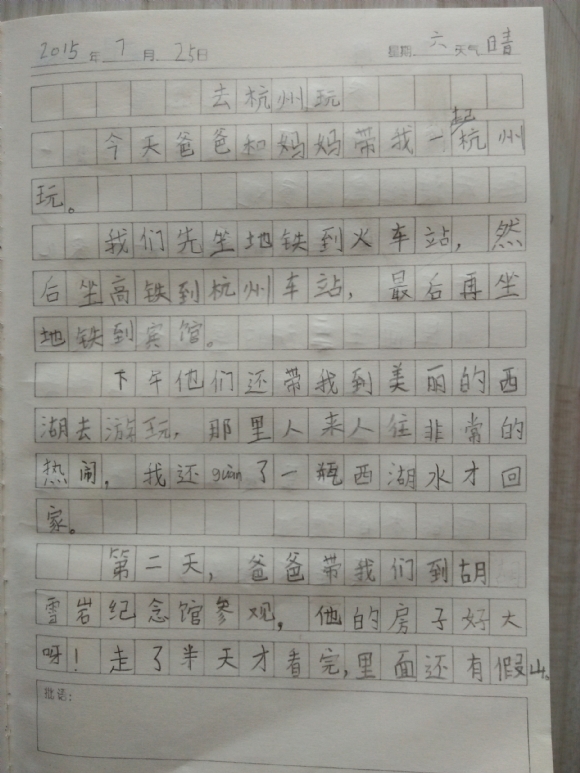 2015年7月25日 星期六 天气晴
去杭州玩
今天爸爸和妈妈带我一起杭州
玩。
我们先坐地铁到火车站，然
后坐高铁到杭州车站，最后再坐
地铁到宾馆。
下午他们还带我到美丽的西
湖去游玩，那里人来人往非常的
热闹，我还guàn了一瓶西湖水才回
家。
第二天，爸爸带我们到胡
雪岩纪念馆参观，他的房子好大
呀！走了半天才看完，里面还有假山。
批语：